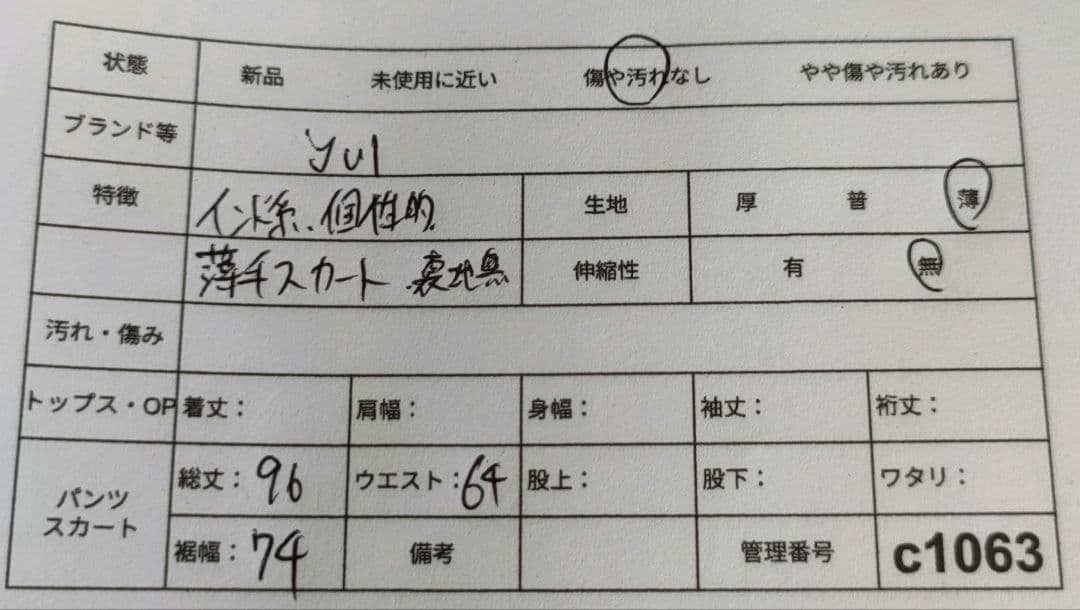 状態 新品 未使用に近い 傷や汚れなし やや傷や汚れあり
ブランド等 yul
特徴 インド系、個性的 生地 厚 普 薄
薄手スカート 裏地黒 伸縮性 有 無
汚れ・傷み
トップス・OP 着丈： 肩幅： 身幅： 袖丈： 裄丈：
パンツ スカート 総丈：96 ウエスト：64 股上： 股下： ワタリ：
裾幅：74 備考 管理番号 c1063